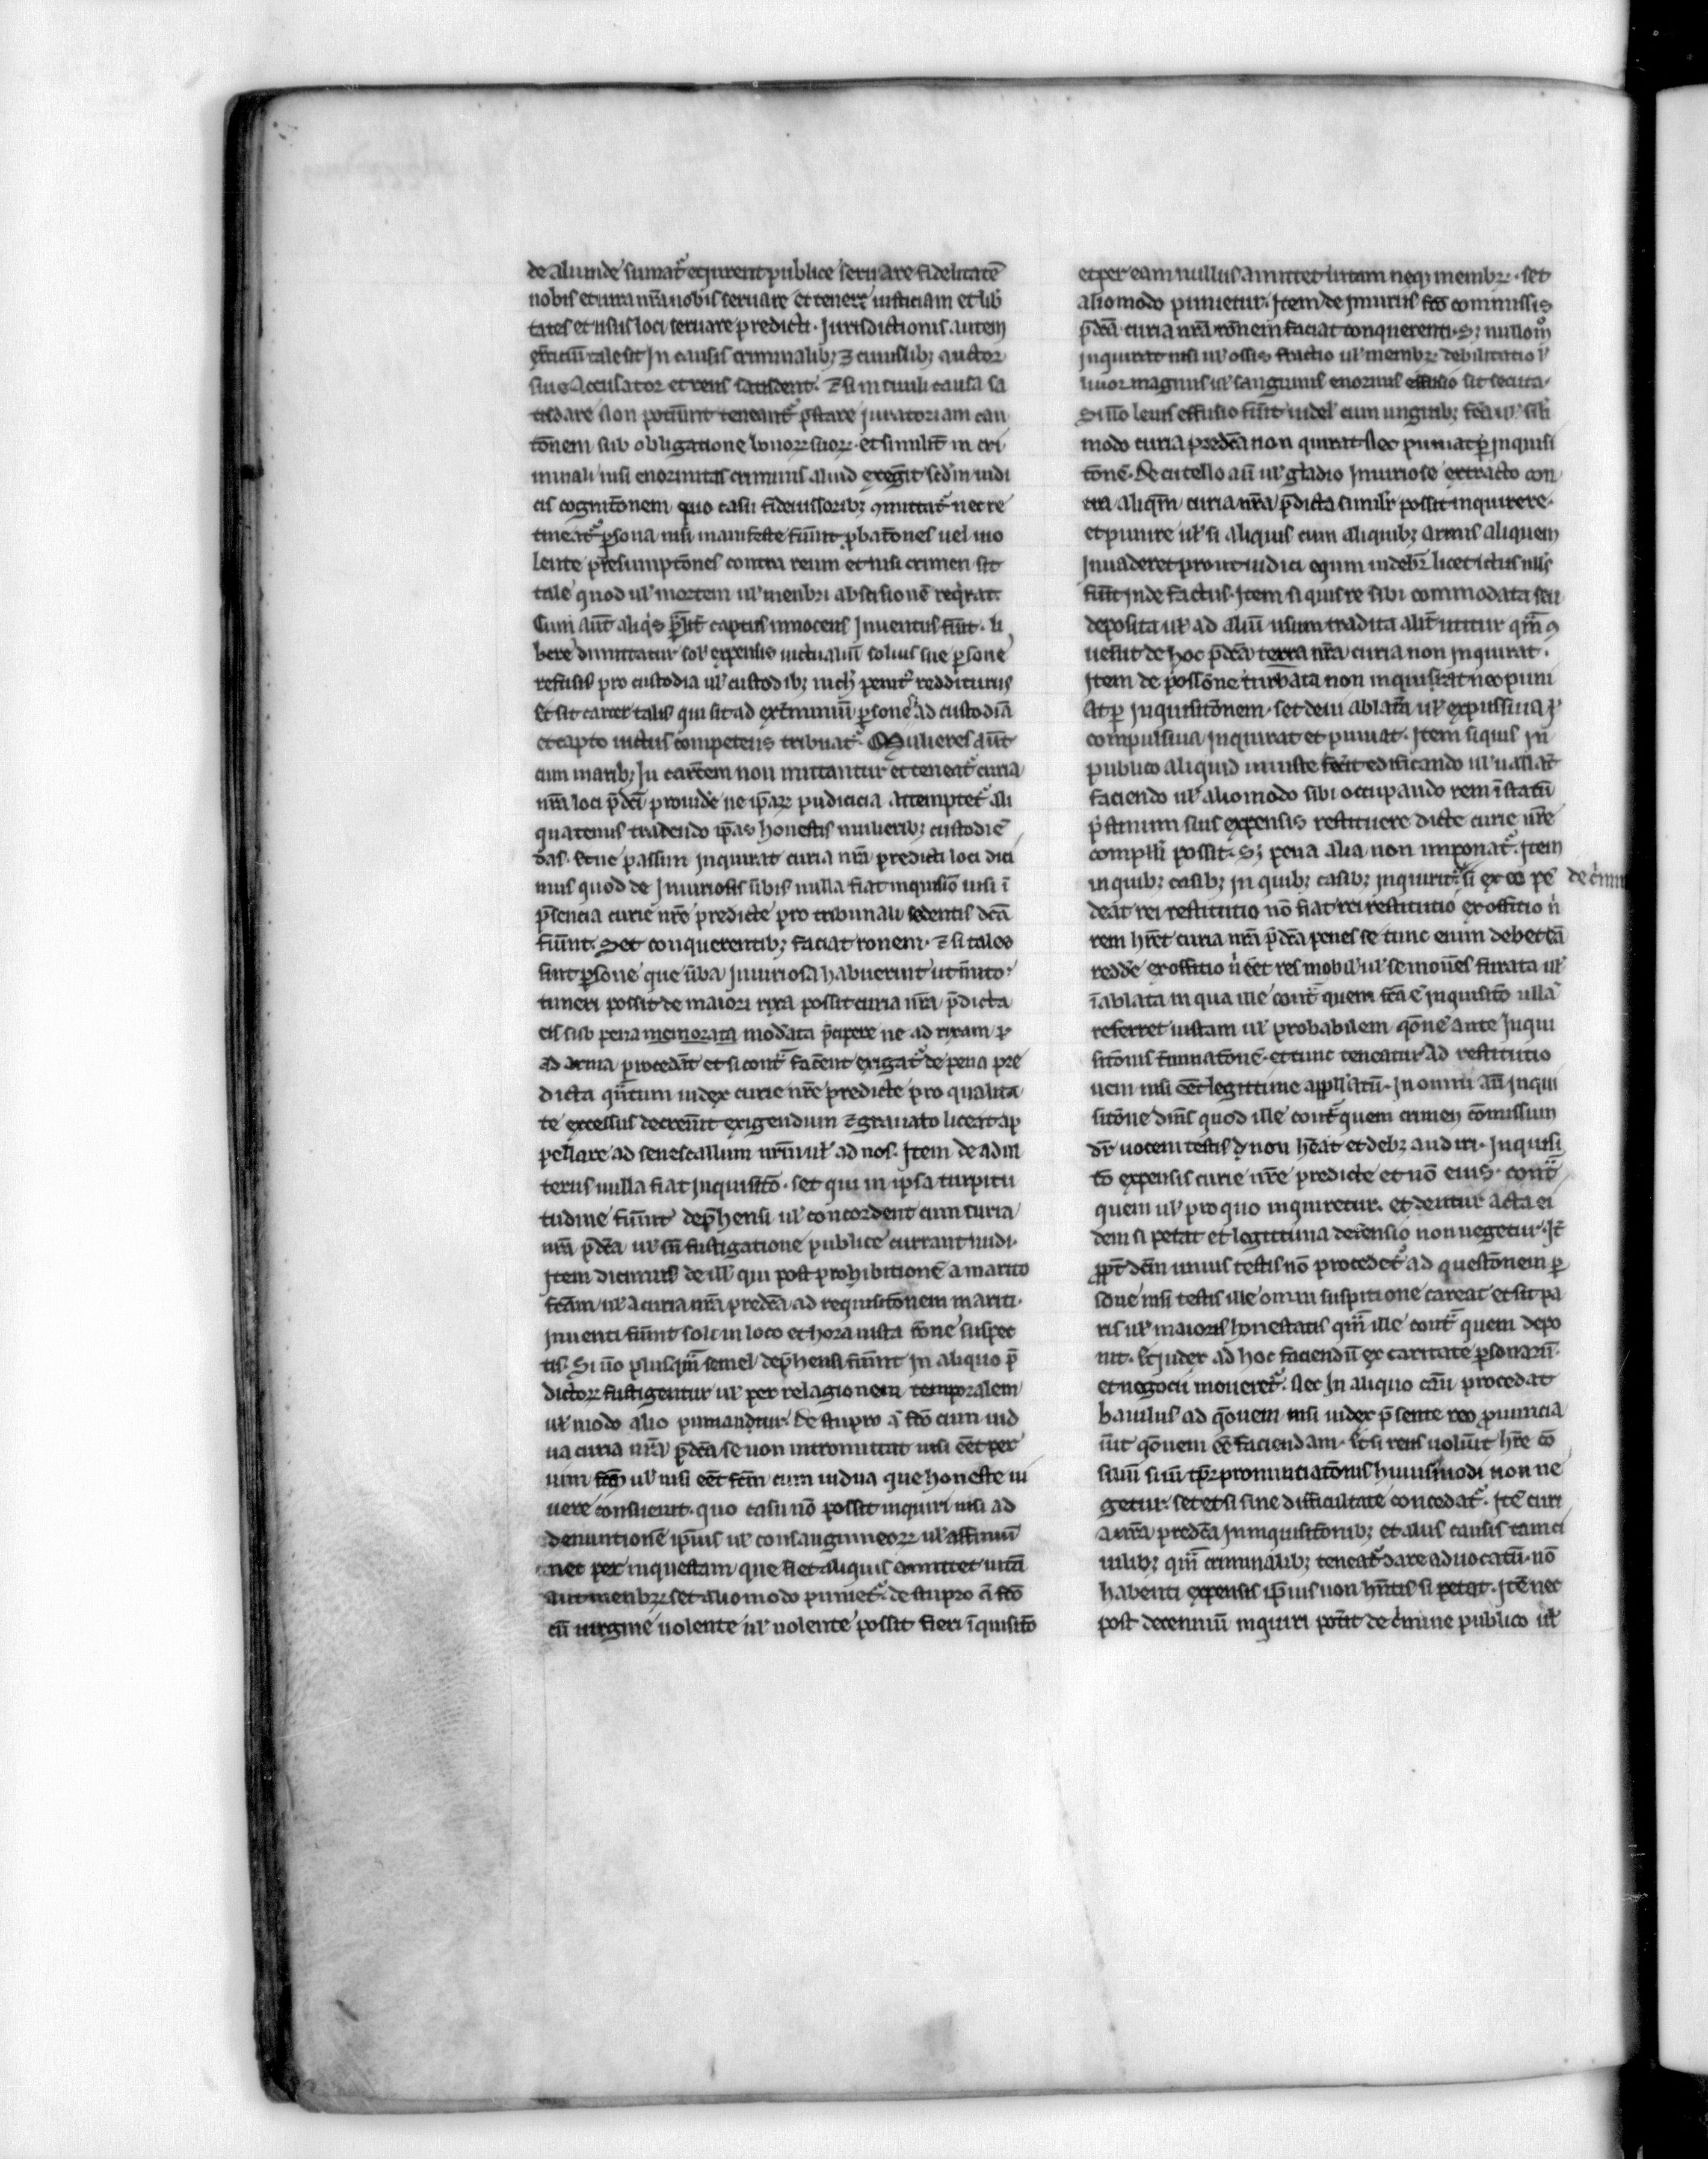 de aliunde sumat᷒ et iurent publice seruare fidelitatē
nobis et iura nr̄a nobis seruare et tenere iusticiam et lib̾
tates et usus loci seruare predicti. Jurisdictionis autem
ex̾ciciū tale sit Jn causis criminalib; ⁊ ciuilib; auctor
siue Accusator et reus satisdent. ⁊ si in ciuili causa sa
tisdare Non pot̾unt teneant᷒ p̄stare juratoriam cau
tōnem sub obligatione bonoꝝ suoꝝ. et similit̾ in cri
minali nisi enormitas criminis aliud exeg̾it scd̄m iudi
cis cognitōnem quo casu fideiussorib; ꝯmittat᷒ nec re
tineat᷒ ꝑsona nisi manifeste fu̾int ꝓbatōnes uel uio
lente p̄resumptōnes contra reum et nisi crimen sit
tale quod ul̾ mortem ul̾ menbri abscisionē req̾rat.
Cum aūt aliq̾s captus innocens Jnuentus fu̾it. li
bere dimittatur sol̾ expensis uictualiū solius sue ꝑsone
refusis pro custodia ul̾ custodib; nich̾ penit᷒ redditurus
Et sit carcer talis qui sit ad ext̾miniū ꝑsone ad custodiā
et capto uictus competens tribuat᷒. Mulieres aūt
cum marib; Jn carc̾em non mittantur et teneat᷒ curia
nr̄a loci p̄dc̄i prouide ne ip̄aꝝ pudicicia attemptet᷒ ali
quatenus tradendo ip̄as honestis mulierib; custodiē
das. Et ne ꝑ assim inquirat curia nr̄a predicti loci dici
mus quod de Jniuriosis u̾bis nulla fiat inquisic̄o nisi ī
p̄sencia curie nr̄e predicte pro tribunali sedentis dc̄a
fu̾int. Set conquerentib; faciat ronem. ⁊ si tales
sint ꝑsone que u̾ba Jniuriosa habuerint ut m̾ito
timeri possit de maiori rixa possit curia nr̄a p̄dicta
eis sub pena memorata mod̾ata p̄cipere ne ad rixam ul̾
ad arma procedāt et si cont̾ fac̾ent exigat᷒ de pena pre
dicta qn̄tum iudex curie nr̄e predicte pro qualita
te excessus decreu̾it exigendum ⁊ grauato liceat ap
pellare ad senescallum nr̄m ul̾ ad nos. Jtem de adul
teriis nulla fiat Jnquisic̄o. set qui in ipsa turpitu
tudine fu̾int dep̄hensi ul̾ concordent cum curia
nr̄a p̄dc̄a ul̾ sn̄ fustigatione publice currant nudi.
Jtem dicimus de ill̾ qui post prohibitionē a marito
fc̄am ul̾ a curia nr̄a predc̄a ad requisitōnem mariti.
Jnuenti fu̾int soli in loco et hora iusta rōne suspec
tis. Si ūo plus q̄m semel dep̄hensi fu̾int Jn aliquo p̄
dictoꝝ fustigentur ul̾ per relagionem temporalem
ul̾ modo alio puniantur. De stupro ā fc̄o cum uid
ua curia nr̄a p̄dc̄a se non intromittat nisi eēt per
uim fc̄m ul̾ nisi eēt fc̄m cum uidua que honeste ui
uere consueuit. quo casu nō possit inquiri nisi ad
denuntionē ip̄ius ul̾ consanguineoꝝ ul̾ affiniū
nec per inquestam que fiet aliquis amittet uitā
aut menbꝝ set alio modo puniet᷒. de stupro ā fc̄o
cū uirgine uolente ul̾ nolente possit fieri īquisitō
et per eam nullus amittet uitam neq; membꝝ. set
alio modo punietur. Jtem de Jniuriis fc̄is commissis
p̄dc̄a curia nr̄a rōnem faciat conquerenti. S; nullo mᵒ
inquirat nisi ul̾ ossis fractio ul̾ membꝝ debilitatio ul̾
liuor magnus ul̾ sanguinis enormis effusio sit secuta.
Si ūo leuis effusio fu̾it uidel̾ cum unguib; fc̄a ul̾ sil̾i
modo curia predc̄a non quirat Nec puniat ꝑ inquisi
tōnē. De cutello aū ul̾ gladio Jniuriose extracto con
tra aliq̄m curia nr̄a p̄dicta simil̾r possit inquirere.
et punire ul̾ si aliquis cum aliquib; armis aliquem
Jnuaderet prout iudici equm uidebr̄ licet ictus nll̾s
fu̾it inde factus. Jtem si quis re sibi commodata seu
deposita ul̾ ad aliū usum tradita alit̾ utitur q̄m ꝯ
uen̾it de hoc p̄dc̄a terra nr̄a curia non Jnquirat.
Jtem de possōne turbata non inquirat nec puni
at ꝑ Jnquisitōnem. set de ui ablatia ul̾ expulsiua ul̾
compulsiua inquirat et puniat. Jtem si quis in
publico aliquid iniuste fec̾it edificando ul̾ uallat̄
faciendo ul̾ alio modo sibi occupando rem ī statū
p̄stinum suis expensis restituere dicte curie nr̄e
compelli possit. S; pena alia non imponat᷒. Jtem
in quib; casib; in quib; casib; inquirit᷒ si ex eo pe de c̾mi
deat rei restitutio nō fiat rei restitutio ex offitio n̾
rem hr̄et curia nr̄a p̄dc̄a penes se tunc enim debet eā
redde̾ ex offitio n̾ eēt res mobil̾ ul̾ se mouēs furata ul̾
ī ablata in qua ille cont̾ quem fc̄a ē inquisitō nullā
referret iustam ul̾ probabilem qōnē ante Jnqui
sitōnis t̾minatōnē. et tunc teneatur ad restitutio
nem nisi eēt legittime appll̾atū. Jn omni aū Jnqui
sitōne dim̾s quod ille cont̾ quem crimen cōmissum
dr̄ uocem testis non heāt et deb; audiri. Jnquisi
tō expensis curie nr̄e predicte et nō eius. cont̾
quem ul̾ pro quo inquiretur. et dentur acta ei
dem si petat et legittima defensio non negetur. Jt̄
ꝓpt̾ dc̄m unius testis nō procedet᷒ ad questōnem ꝑ
sone nisi testis ille omni suspitione careat et sit pa
ris ul̾ maioris honestatis q̄m ille cont̾ quem depo
nit. Et judex ad hoc faciendū ex caritate ꝑsonarū.
et negocii moueret᷒. Nec Jn aliquo cāu procedat
bauilus ad qōnem nisi iudex p̄sente reo ꝓnuncia
u̾it qōnem eē faciendam. Et si reus uolu̾it hr̄e cō
siliū suū tp̄r pronuntiatōnis huiusmodi non ne
getur. set et si sine difficultate concedat᷒. Jtē curi
a nr̄a predc̄a Jn inquisitōnib; et aliis causis tam ci
uilib; q̄m criminalib; teneat᷒ dare aduocatū. nō
habenti expensis ip̄ius non hn̄tis si petat. Jtē nec
post decenniū inquiri pot̾it de c̾mine publico ul̾